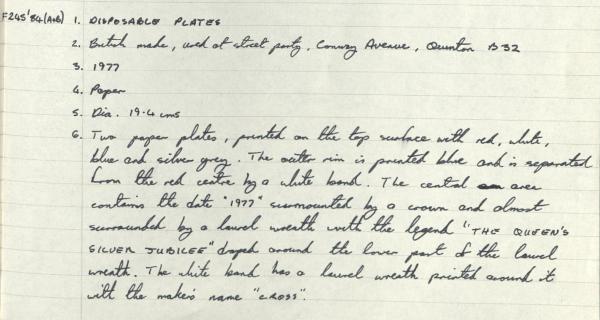 F245'84(A+B) 1. DISPOSABLE PLATES
2. British made, used at street party, Conway Avenue, Quinton B32
3. 1977
4. Paper
5. Dia. 19.4 cms
6. Two paper plates, printed on the top surface with red, white,
blue and silver grey. The outer rim is printed blue and is separated
from the red centre by a white band. The central area
contains the date "1977" surmounted by a crown and almost
surrounded by a laurel wreath with the legend "THE QUEEN'S
SILVER JUBILEE" draped around the lower part of the laurel
wreath. The white band has a laurel wreath printed around it
with the maker's name "CROSS".